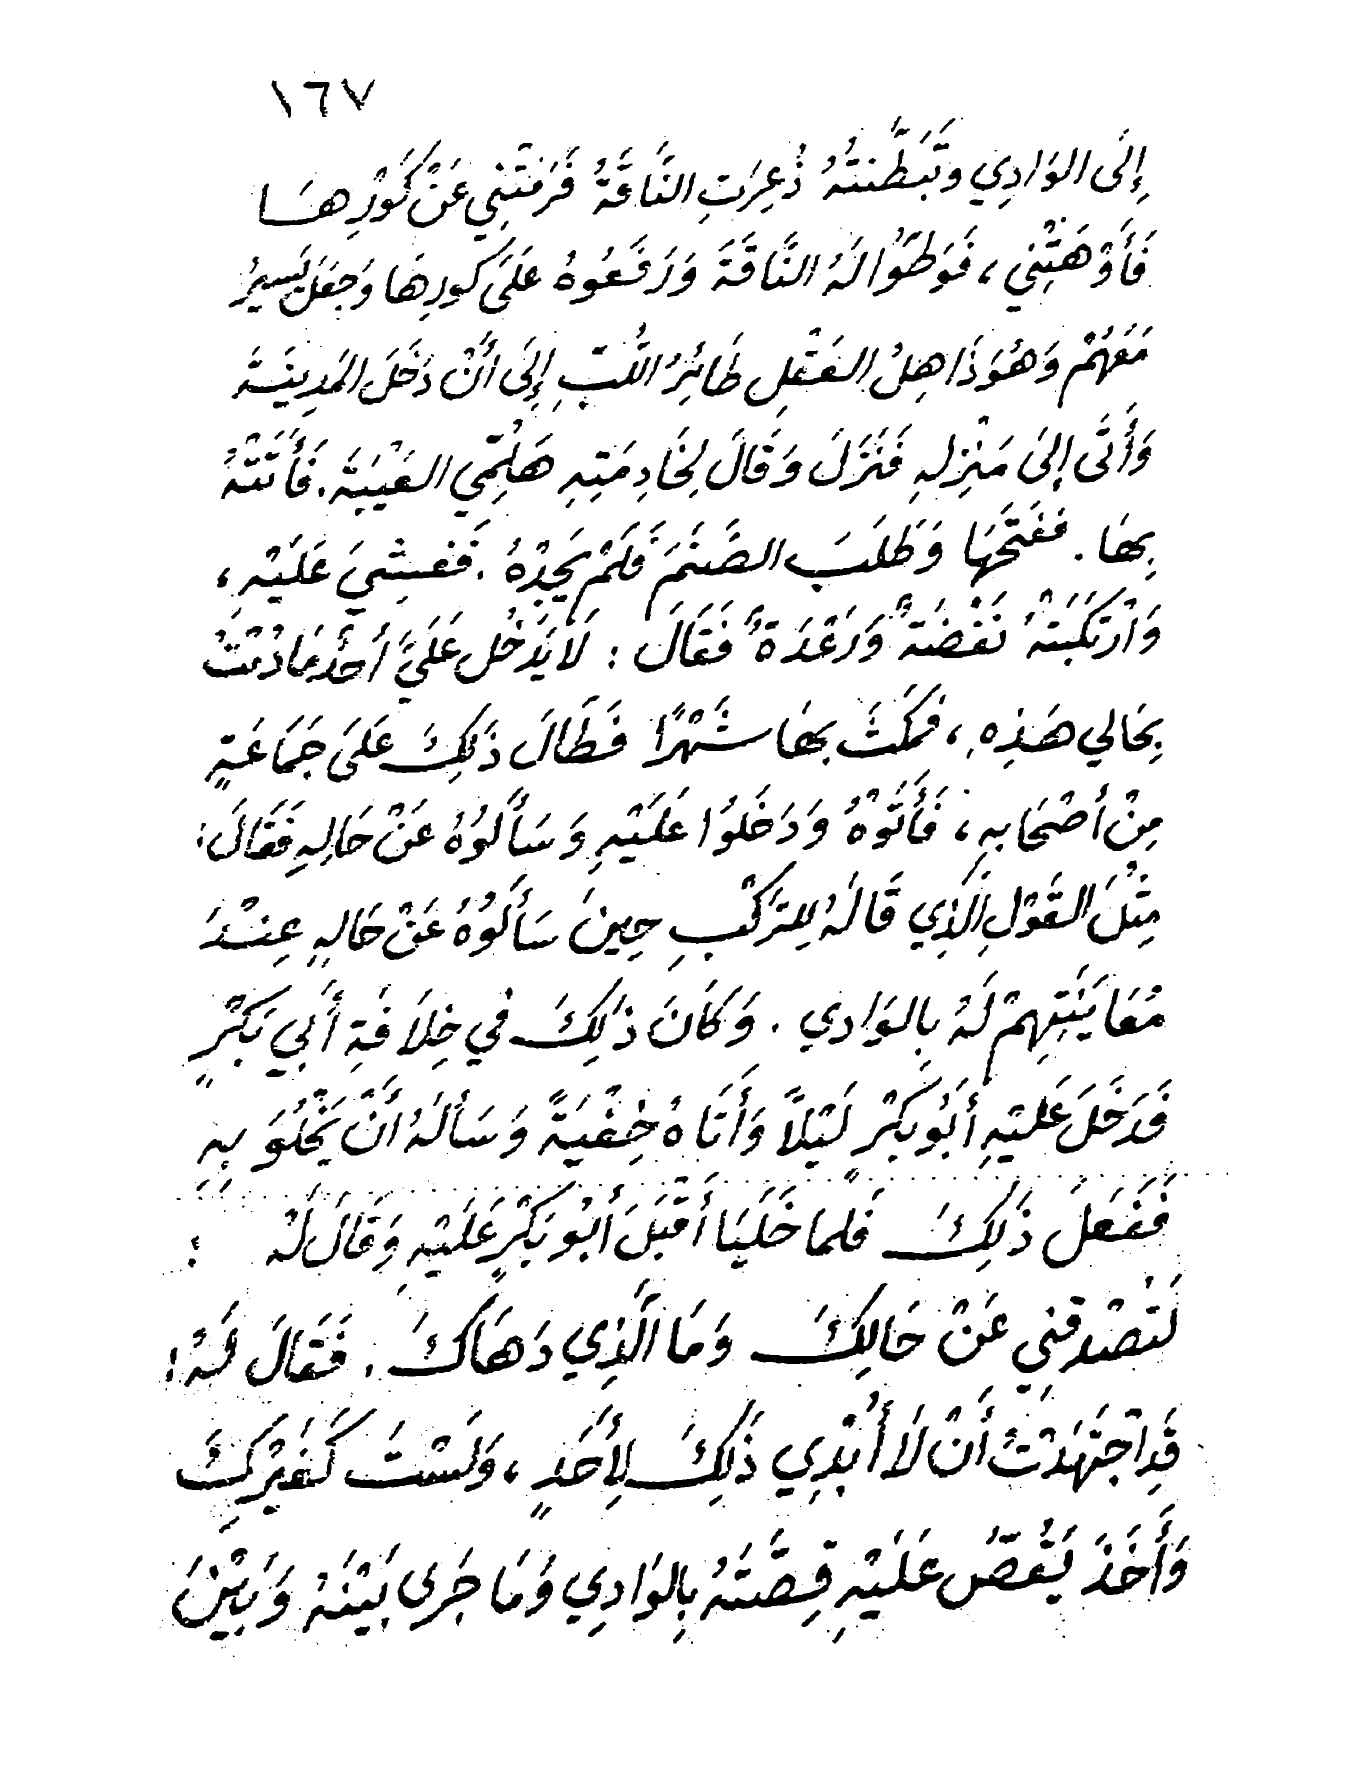 ١٦٧
إِلَى الوَادِي وَتَبَطَّنتُهُ ذُعِرَتِ النَّاقَةُ فَرَمَتْنِي عَنْ كُورِهَا
فَأَوْهَتْنِي ، فَوَطَّوُا لَهُ النَّاقَةَ وَرَفَعُوهُ عَلَى كورِهَا وَجَعَلَ يَسِيرُ
مَعَهُمْ وَهُوَ ذَاهِلُ العَقْلِ طَائِرُ اللُّبِّ إِلَى أَنْ دَخَلَ المَدِينَةَ
وَأَتَى إِلَى مَنْزِلِهِ فَنَزَلَ وَقَالَ لِخَادِمَتِهِ هَلُمِّي العَيْبَةَ . فَأَتَتْهُ
بِهَا . فَفَتَحَهَا وَطَلَبَ الصَّنَمَ فَلَمْ يَجِدْهُ . فَغشِيَ عَلَيْهِ ،
وَارْتَكَبَتْهُ نَفْضَةٌ وَرَعْدَةٌ فَقَالَ : لَا يَدْخُل عَلَيَّ أَحَدٌ مَا دُمْتُ
بِحَالِي هَذِهِ ، فمَكَثَ بِهَا شَهْرًا فَطَالَ ذَلِكَ عَلَى جَمَاعَةٍ
مِنْ أَصْحَابِهِ ، فَأَتَوْهُ وَدَخَلُوا عَلَيْهِ وَسَأَلُوهُ عَنْ حَالِهِ فَقَالَ :
مِثْلَ القَوْلِ الَّذِي قَالَهُ لِلرَّكْبِ حِينَ سَأَلُوهُ عَنْ حَالِهِ عِنْدَ
مُعَايَنَتِهِمْ لَهُ بِالوَادِي . وَكَانَ ذَلِكَ فِي خِلَافَةِ أَبِي بَكْرٍ
فَدَخَلَ عَلَيْهِ أَبُو بَكْرٍ لَيْلًا وَأَتَاهُ خِفْيَةً وَسَأَلَهُ أَنْ يَخْلُوَ بِهِ
فَفَعَلَ ذَلِكَ فَلَمَّا خَلَيَا أَقْبَلَ أَبُو بَكْرٍ عَلَيْهِ وَقَالَ لَهُ :
لَتَصْدقنِي عَنْ حَالِكَ وَمَا الَّذِي دَهَاكَ . فَقَالَ لَهُ :
قَدِ اجْتَهَدْتُ أَنْ لَا أُبْدِيَ ذَلِكَ لِأَحَدٍ ، وَلَسْتَ كَغَيْرِكَ
وَأَخَذَ يَقُصُّ عَلَيْهِ قِصَّتَهُ بِالوَادِي وَمَا جَرَى بَيْنَهُ وَبَيْنَ